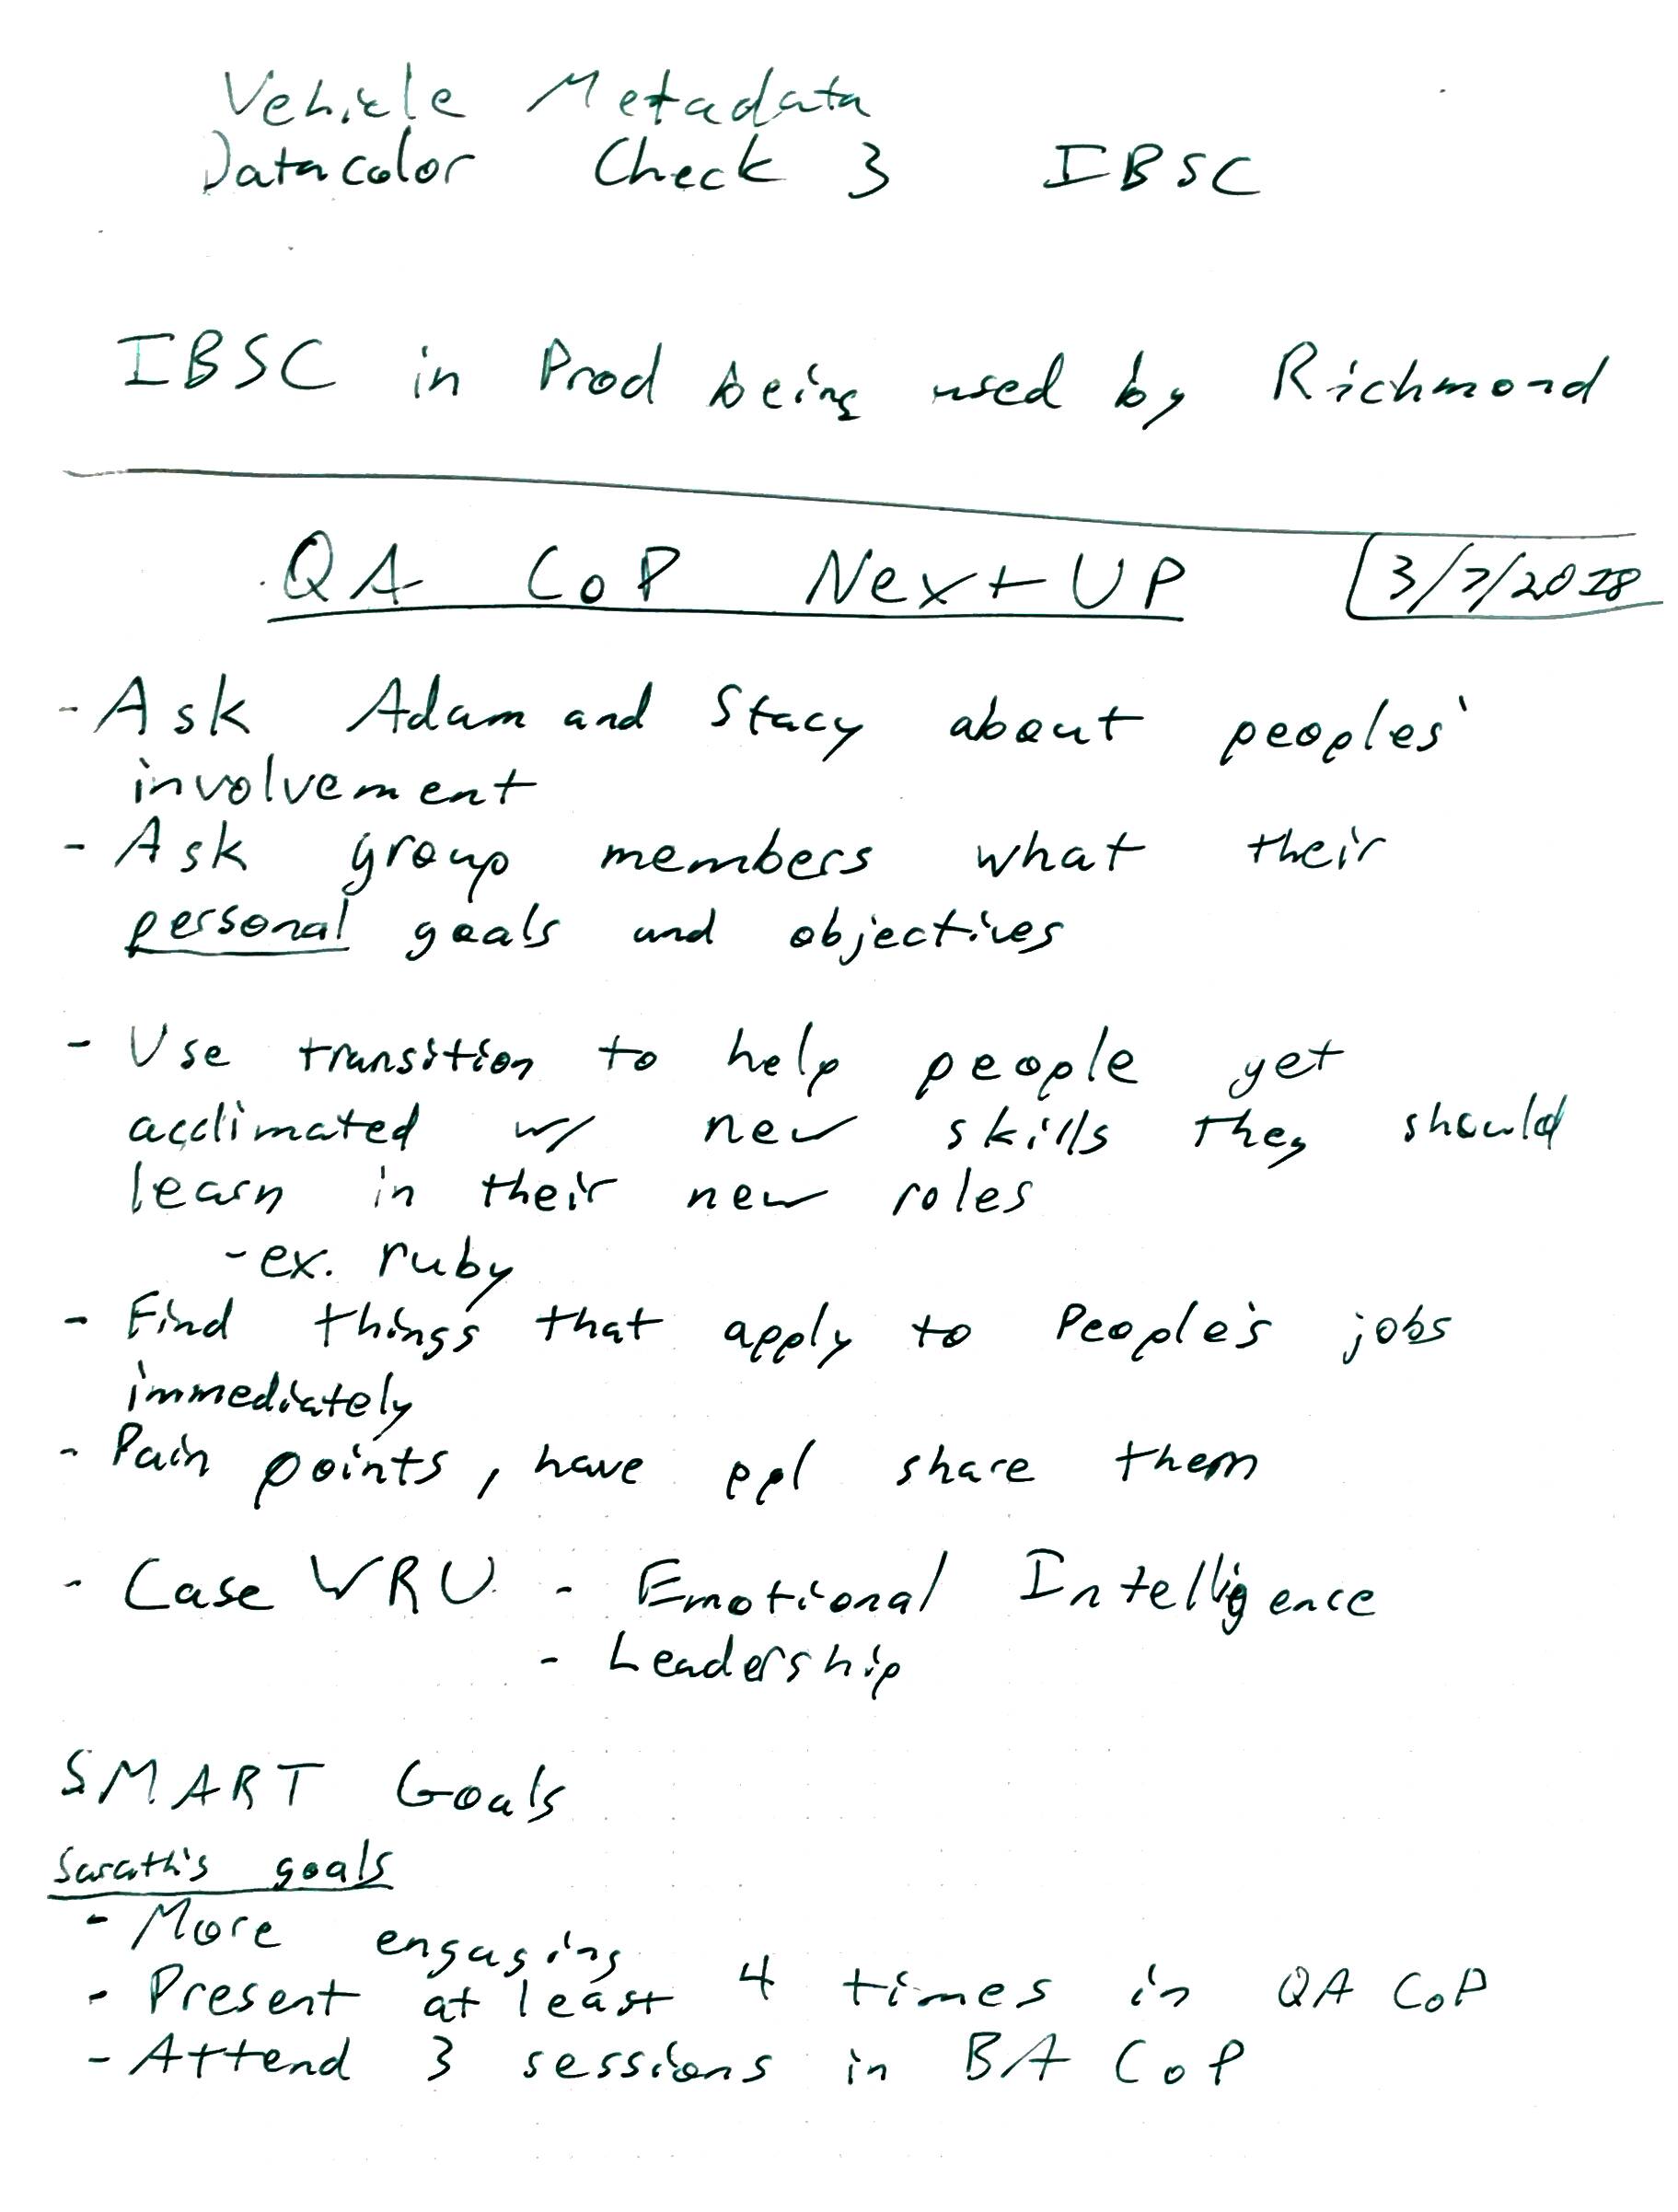 Vehicle Metadata
Datacolor Check 3 IBSC
IBSC in Prod being used by Richmond
QA CoP Next UP 3/7/2018
- Ask Adam and Stacy about peoples'
involvement
- Ask group members what their
personal goals and objectives
- Use transition to help people get
acclimated w/ new skills they should
learn in their new roles
- ex. ruby
- Find things that apply to People's jobs
immediately
- Pain points, have ppl share them
- Case WRU - Emotional Intelligence
- Leadership
SMART Goals
Sarath's goals
- More engaging
- Present at least 4 times in QA CoP
- Attend 3 sessions in BA CoP